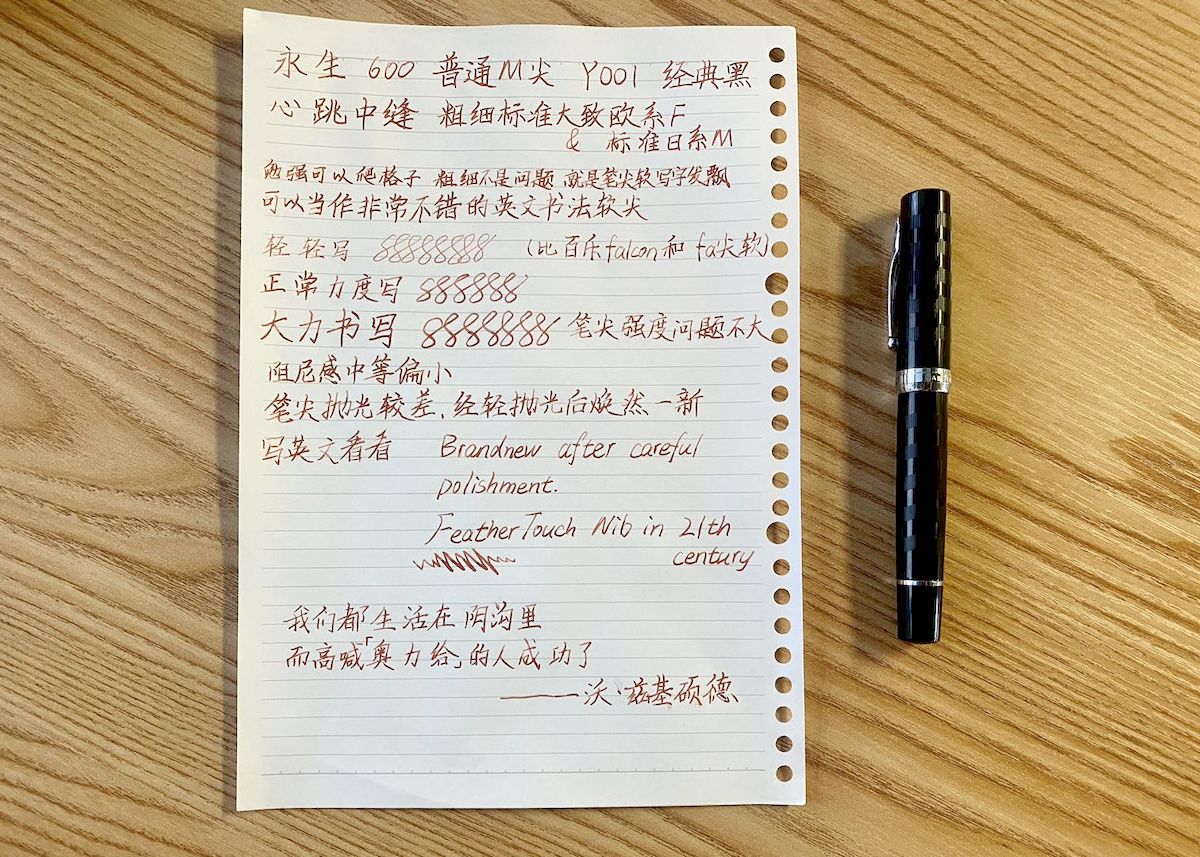 永生 600 普通M尖 Y001 经典黑
心跳中缝 粗细标准大致欧系F
& 标准日系M
勉强可以爬格子 粗细不是问题 就是笔尖软写字发飘
可以当作非常不错的英文书法软尖
轻轻写 88888888 (比百乐falcon和fa尖软)
正常力度写 888888
大力书写 8888888 笔尖强度问题不大
阻尼感中等偏小
笔尖抛光较差、经轻抛光后焕然一新
写英文看看 Brandnew after careful
polishment.
Feather Touch Nib in 21th
century
我们都生活在阴沟里
而高喊「奥力给」的人成功了
——沃·兹基硕德